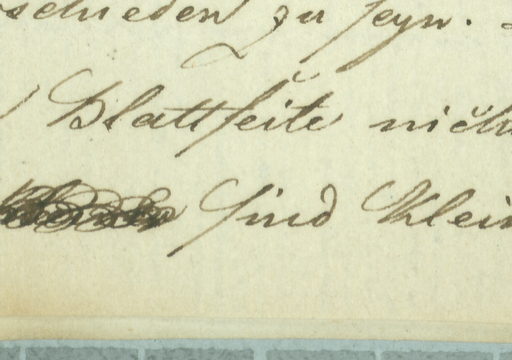 schieden zu seyn.
Blattseite nich
sind Klein